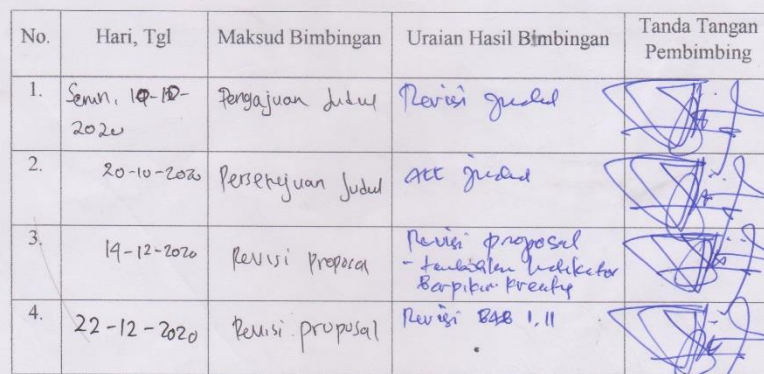 No. Hari, Tgl Maksud Bimbingan Uraian Hasil Bimbingan Tanda Tangan Pembimbing
1. Senin, 2020 Pengajuan Judul Revisi Judul
2. 20-10-2020 Persetujuan Judul Acc Judul
3. 14-12-2020 Revisi Proposal Revisi proposal
- tambahkan Indikator
Berpikir Kreatif
4. 22-12-2020 Revisi proposal Revisi BAB I, II